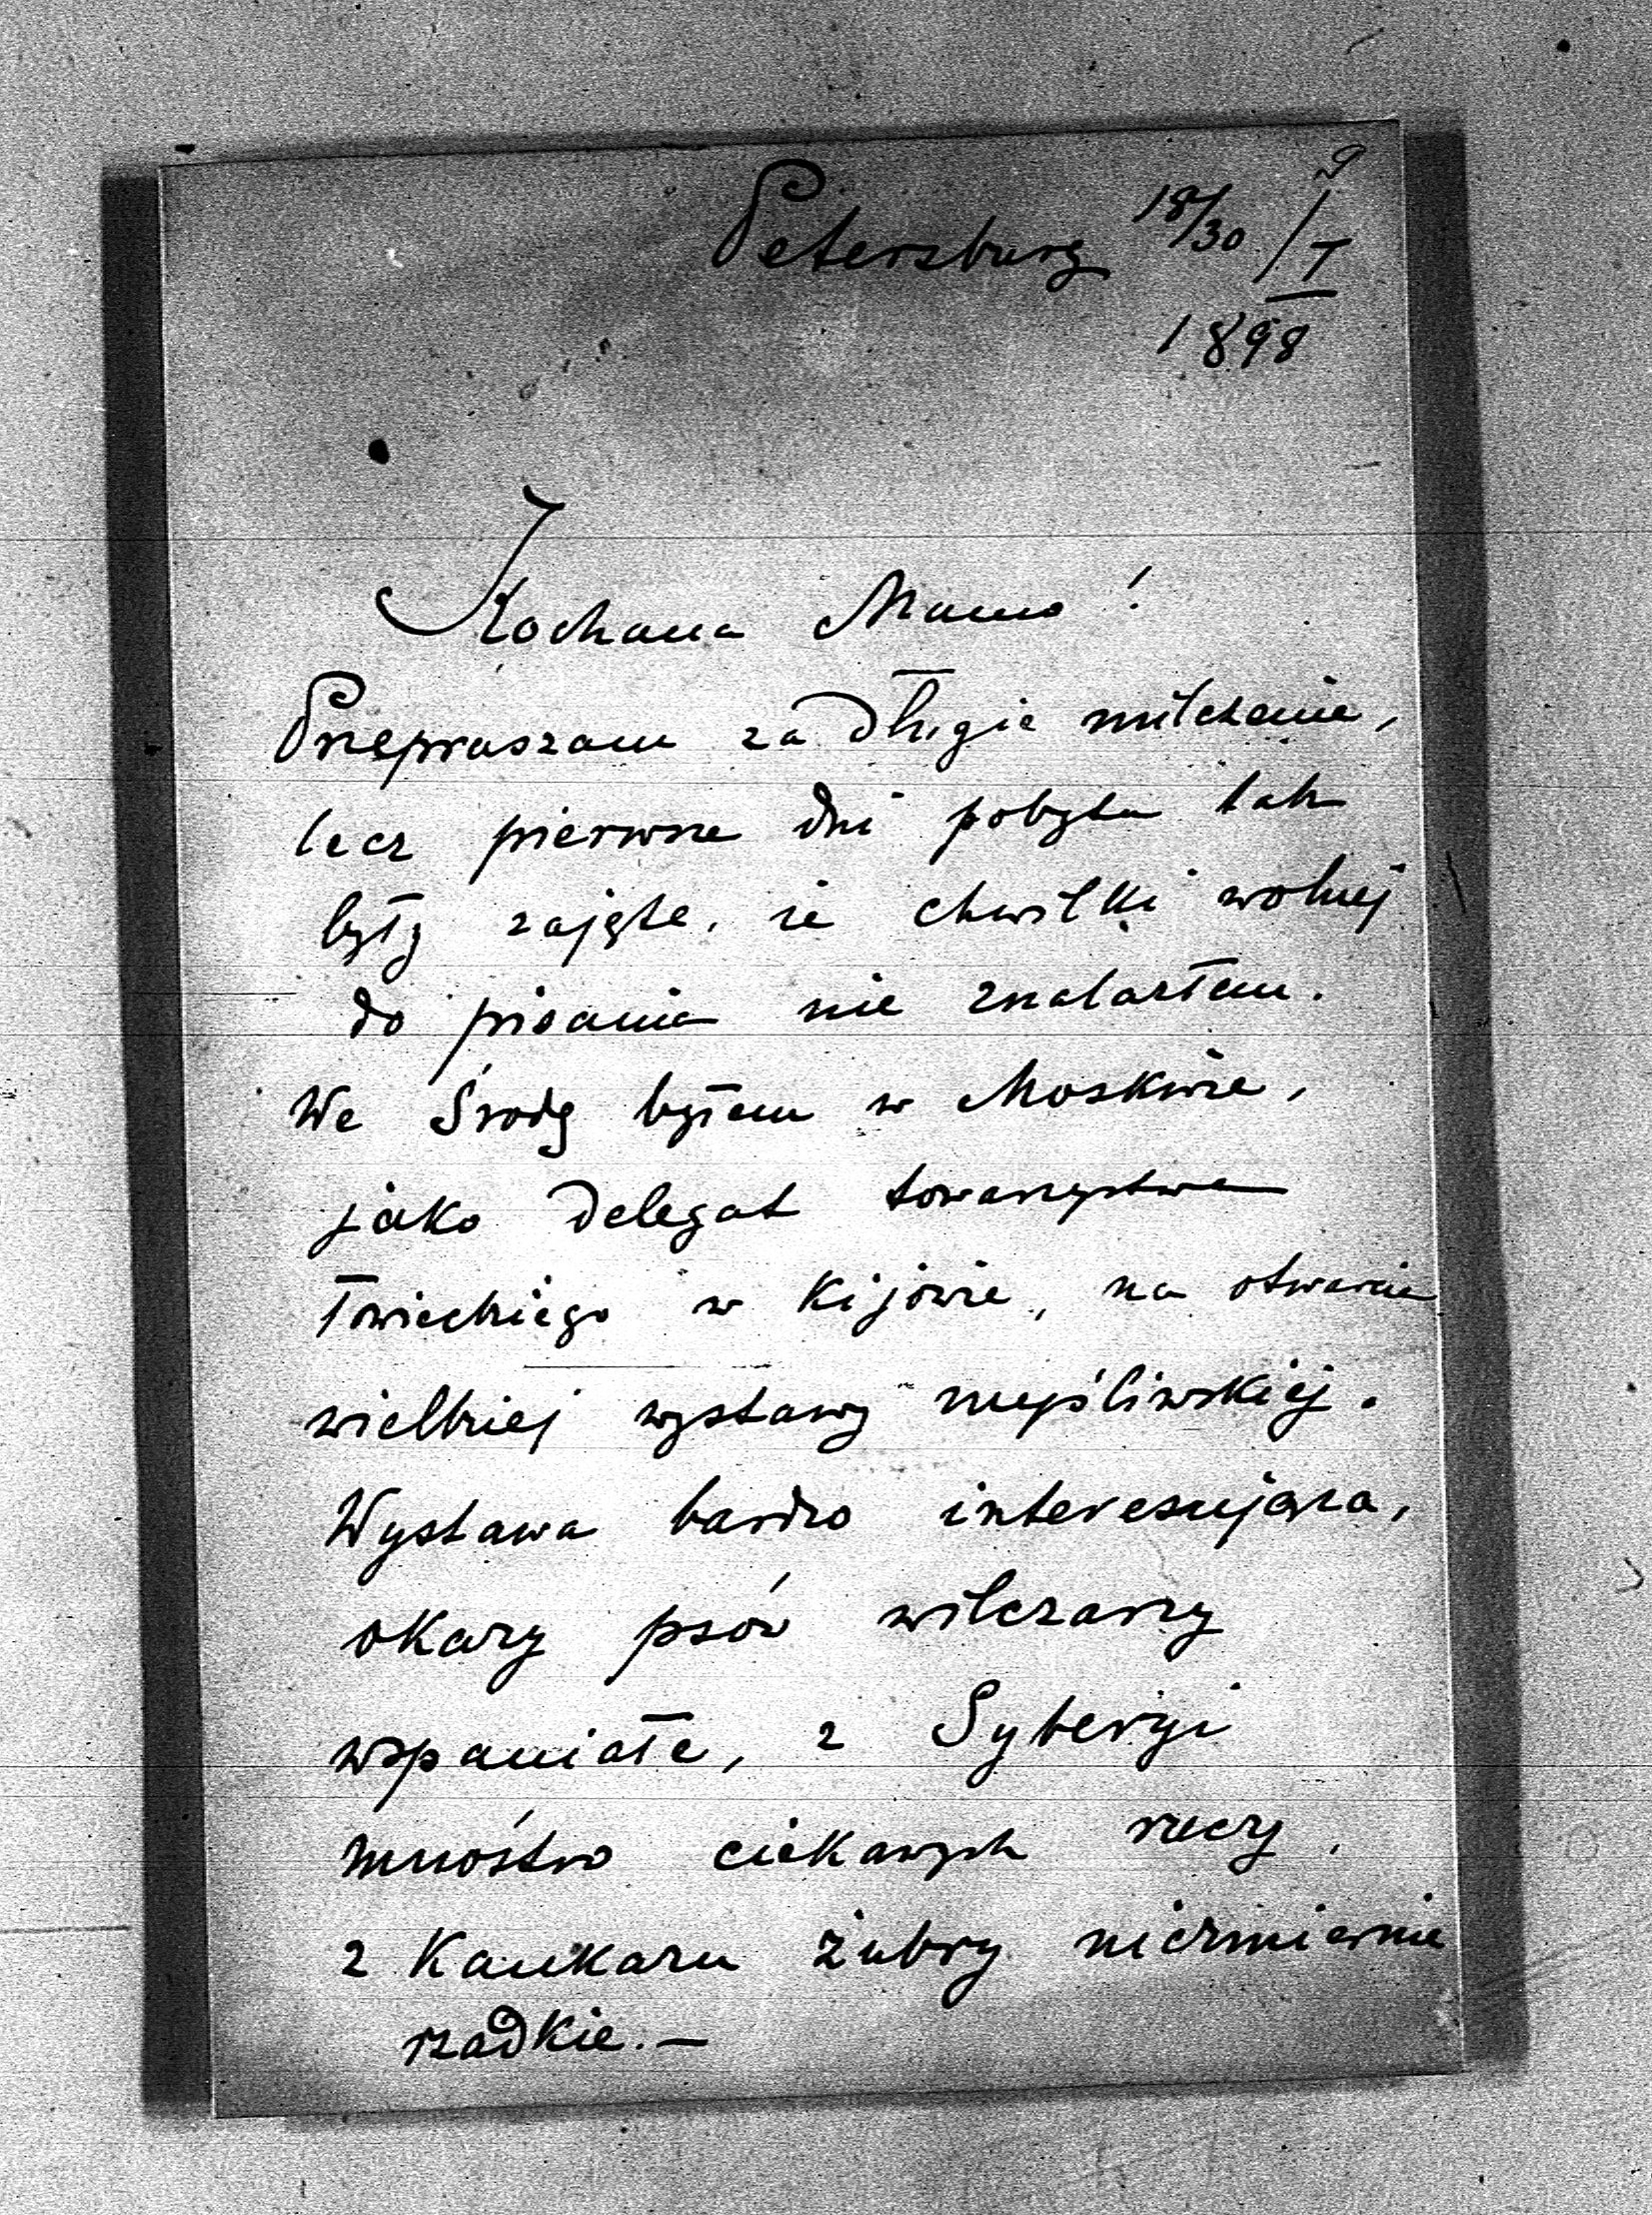 9
Petersburg 18/30 / I
1898
Kochana Mamo!
Przepraszam za długie milczenie,
lecz pierwsze dni pobytu tak
były zajęte, że chwilki wolnej
do pisania nie znalazłem.
We Środę byłem w Moskwie,
jako delegat towarzystwa
łowieckiego w Kijowie, na otwarcie
wielkiej wystawy myśliwskiej.
Wystawa bardzo interesująca,
okazy psów wilczarzy
wspaniałe, z Syberyi
mnóstwo ciekawych rzeczy,
z Kaukazu żubry niezmiernie
rzadkie. —